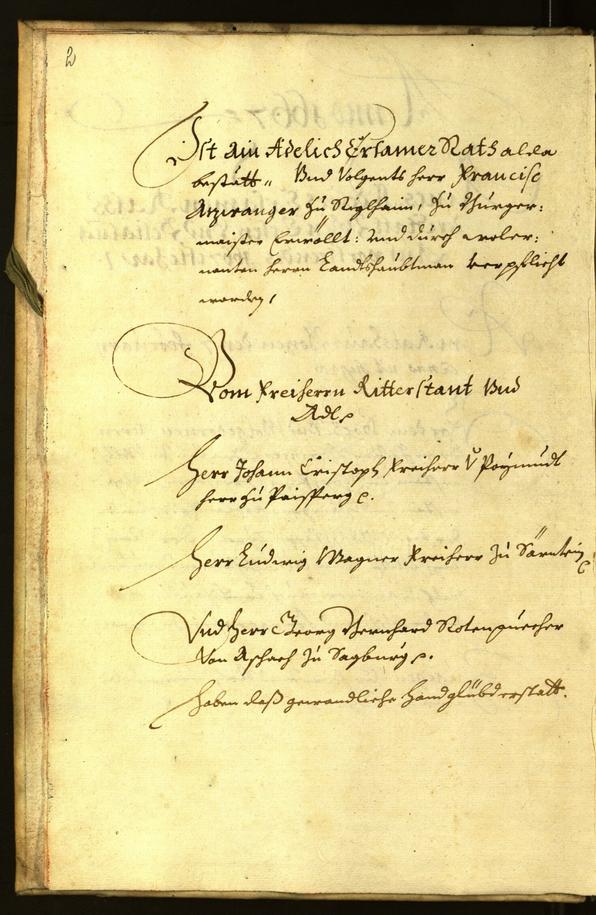 2
Ist ain Adelich Ersamer Rath alda
bestätt„ Vnd Volgents herr Francisc
Aezwanger zu Siglhaim, zu Burger:
maister Erwöllt: vnd durch woler:
nanten herrn Landtshaubtman verpflicht
worden,
Vom Freiherrn Ritterstant Vnd
Adl.
Herr Johann Cristoph Freiherr V Poÿmundt
herr zu Paisperg e.
Herr Ludwig Wagner Freiherr zu Särntein e
Vnd herr Georg Bernhard Rotenpuecher
Von Aschach zu Sagburg e.
haben dass gewandliche Handglübd erstatt.